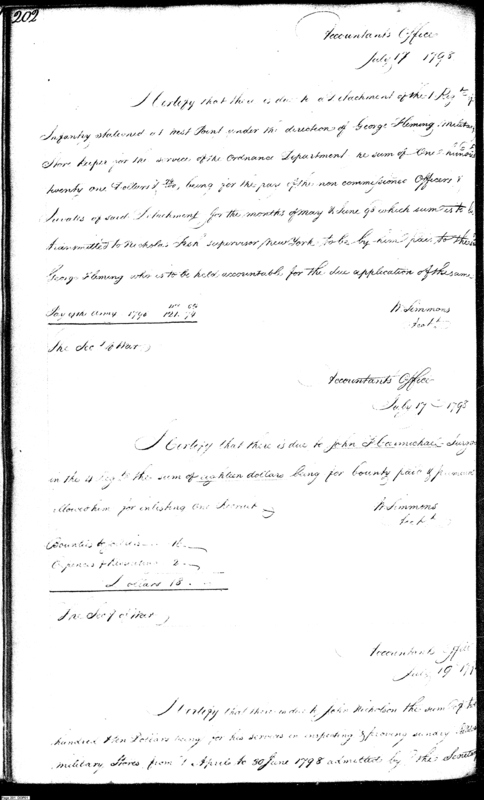 202
Accountants Office
July 17 1793
I Certify that there is due to a Detachment of the 1 Regt of
Infantry stationed at West Point under the direction of George Fleming military
Store keeper for the service of the Ordnance Department the sum of One hundred
twenty one Dollars being for the pay of the non commissioned Officers &
Privates of said Detachment for the months of May & June 93 which sum is to be
transmitted to Nicholas Fish Supervisor New York to be by him paid to the
George Fleming who is to be held accountable for the due application of the same
Pay of the Army 1793 121. 74
W Simmons
Acct
The Secy of War
Accountants Office
July 17 1793
I Certify that there is due to John F Carmichael Surgeon
in the 4 Regt the sum of eighteen dollars being for bounty paid & premium
allowed him for enlisting one Recruit
W Simmons
Acct
Bounties 16
2
Dollars 18
The Secy of War
Accountants Office
July 19 179
I Certify that there is due to John Nicholson the sum of
hundred & ten Dollars being for his services in inspecting & proving sundry
military Stores from 1 April to 30 June 1793 admitted by the Secretary